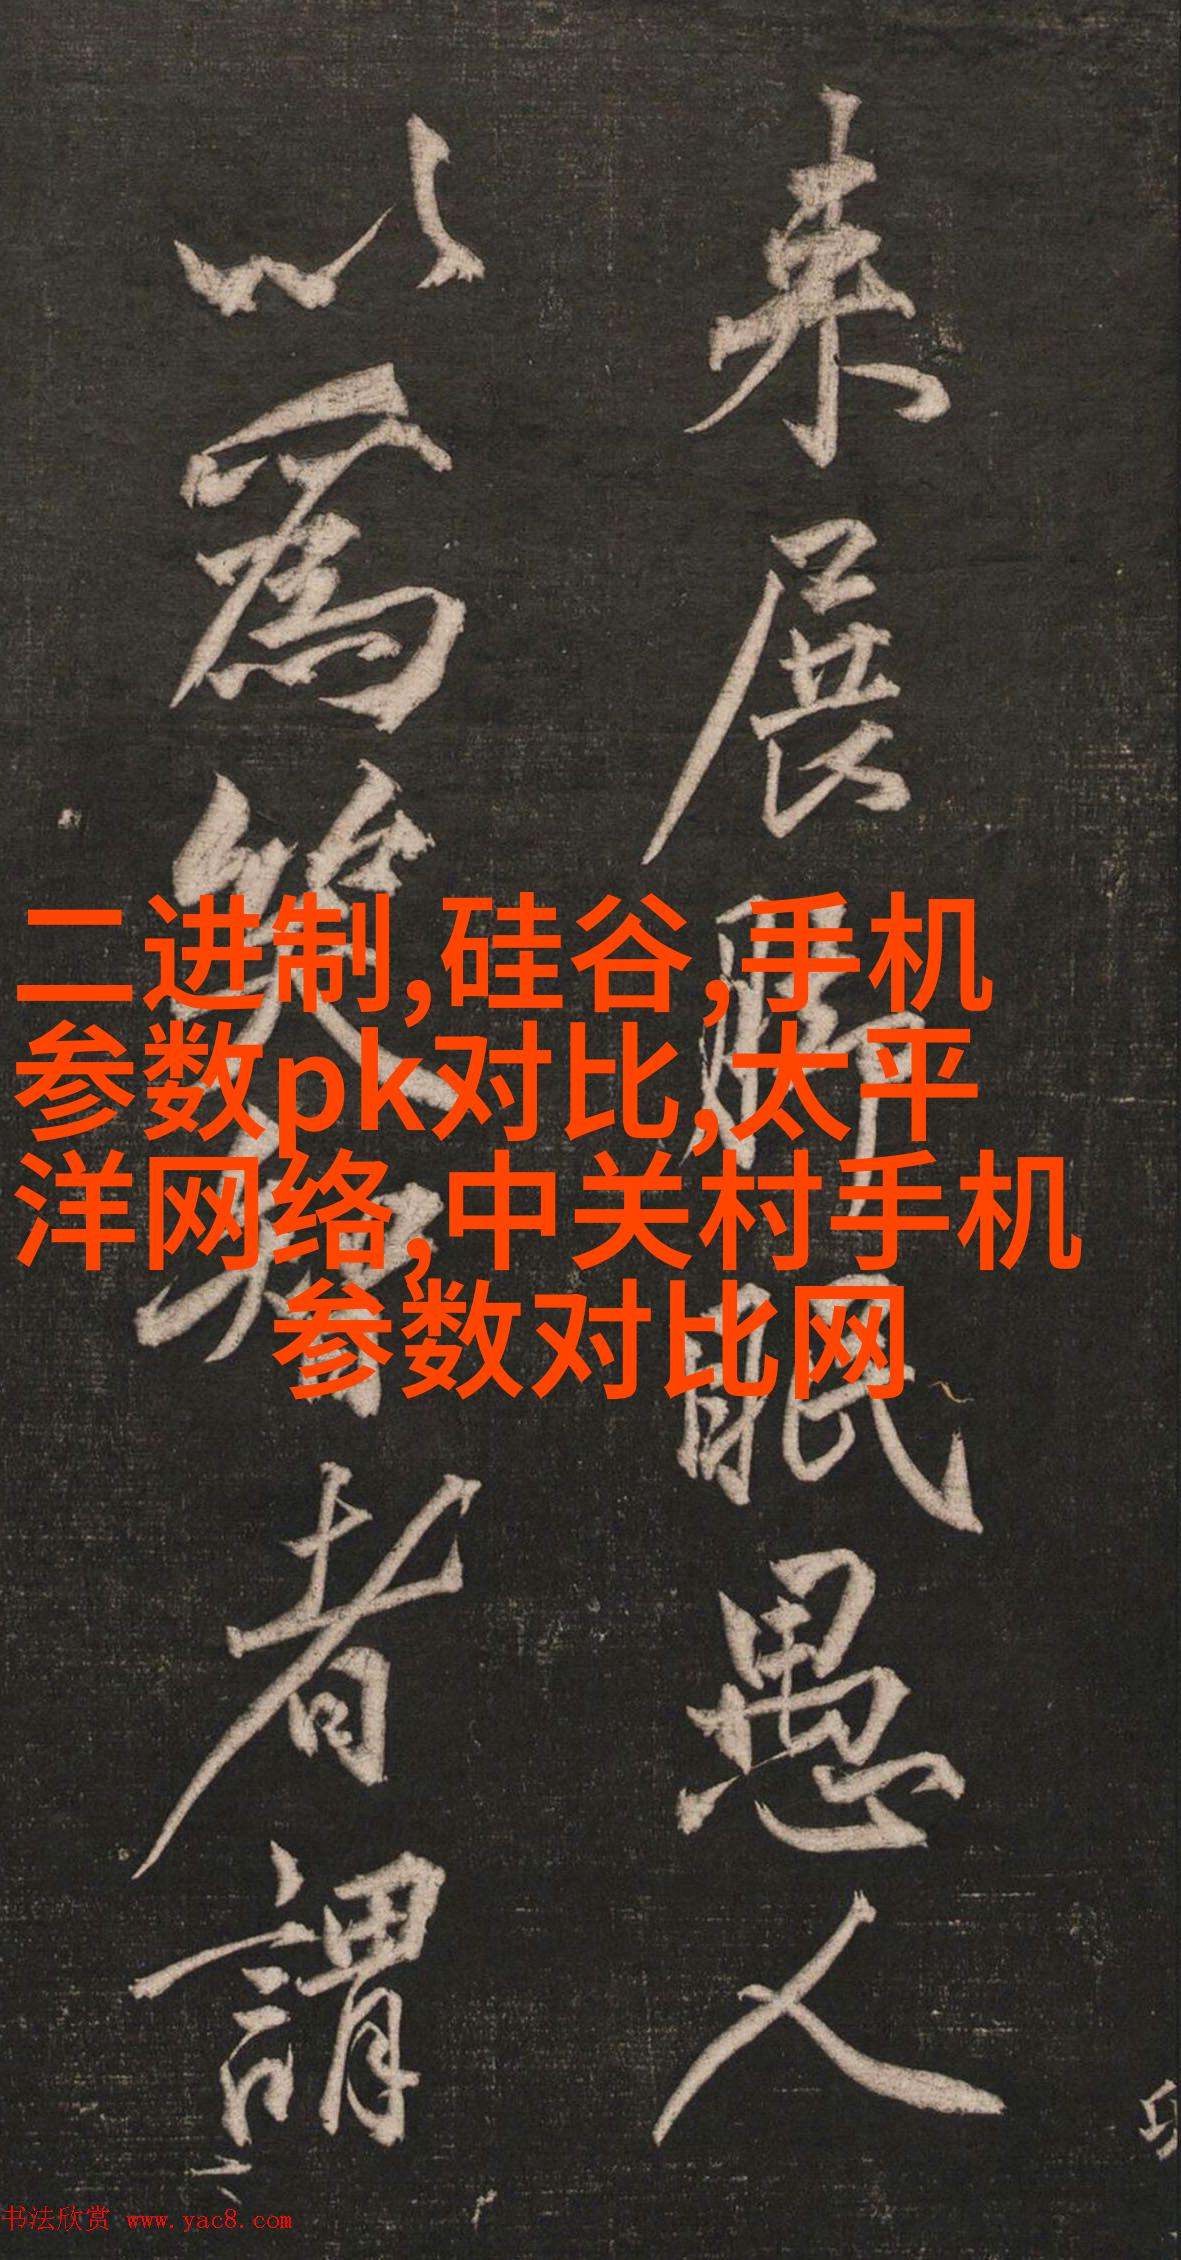 来展脚眠愚人
以為笑智者謂
二进制,硅谷,手机
参数pk对比,太平
洋网络,中关村手机
参数对比网
书法欣赏 www.yac8.com